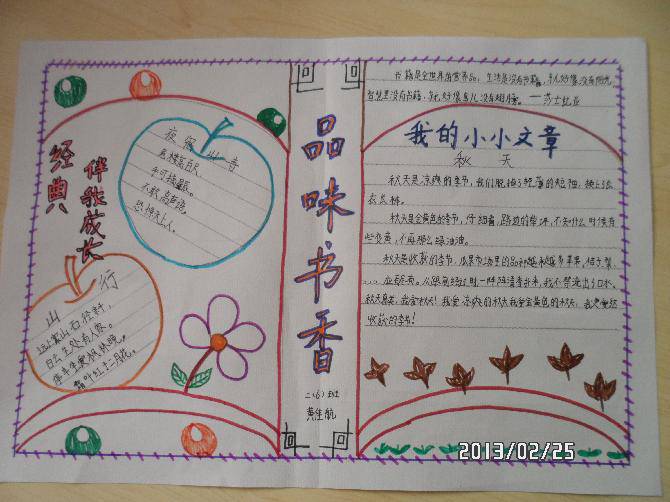 经典
伴我成长
夜宿山寺
危楼高百尺,
手可摘星辰。
不敢高声语,
恐惊天上人。
山行
远上寒山石径斜,
白云生处有人家。
停车坐爱枫林晚,
霜叶红于二月花。
品味书香
二(6)班
黄佳航
书籍是全世界的营养品,生活里没有书籍,就好像没有阳光,
智慧里没有书籍,就好像鸟儿没有翅膀。——莎士比亚
我的小小文章
秋天
秋天是凉爽的季节,我们脱掉了轻薄的短袖,换上
衣长裤。
秋天是金黄色的季节,仔细看,路边的
些发黄,不再那么绿油油。
秋天是收获的季节,瓜果市场里的品种越来越多苹果、柚子、
秋天真美,我爱秋天!我爱凉爽的秋天我爱金黄色的秋天,我更爱
收获的季节!
2013/02/25